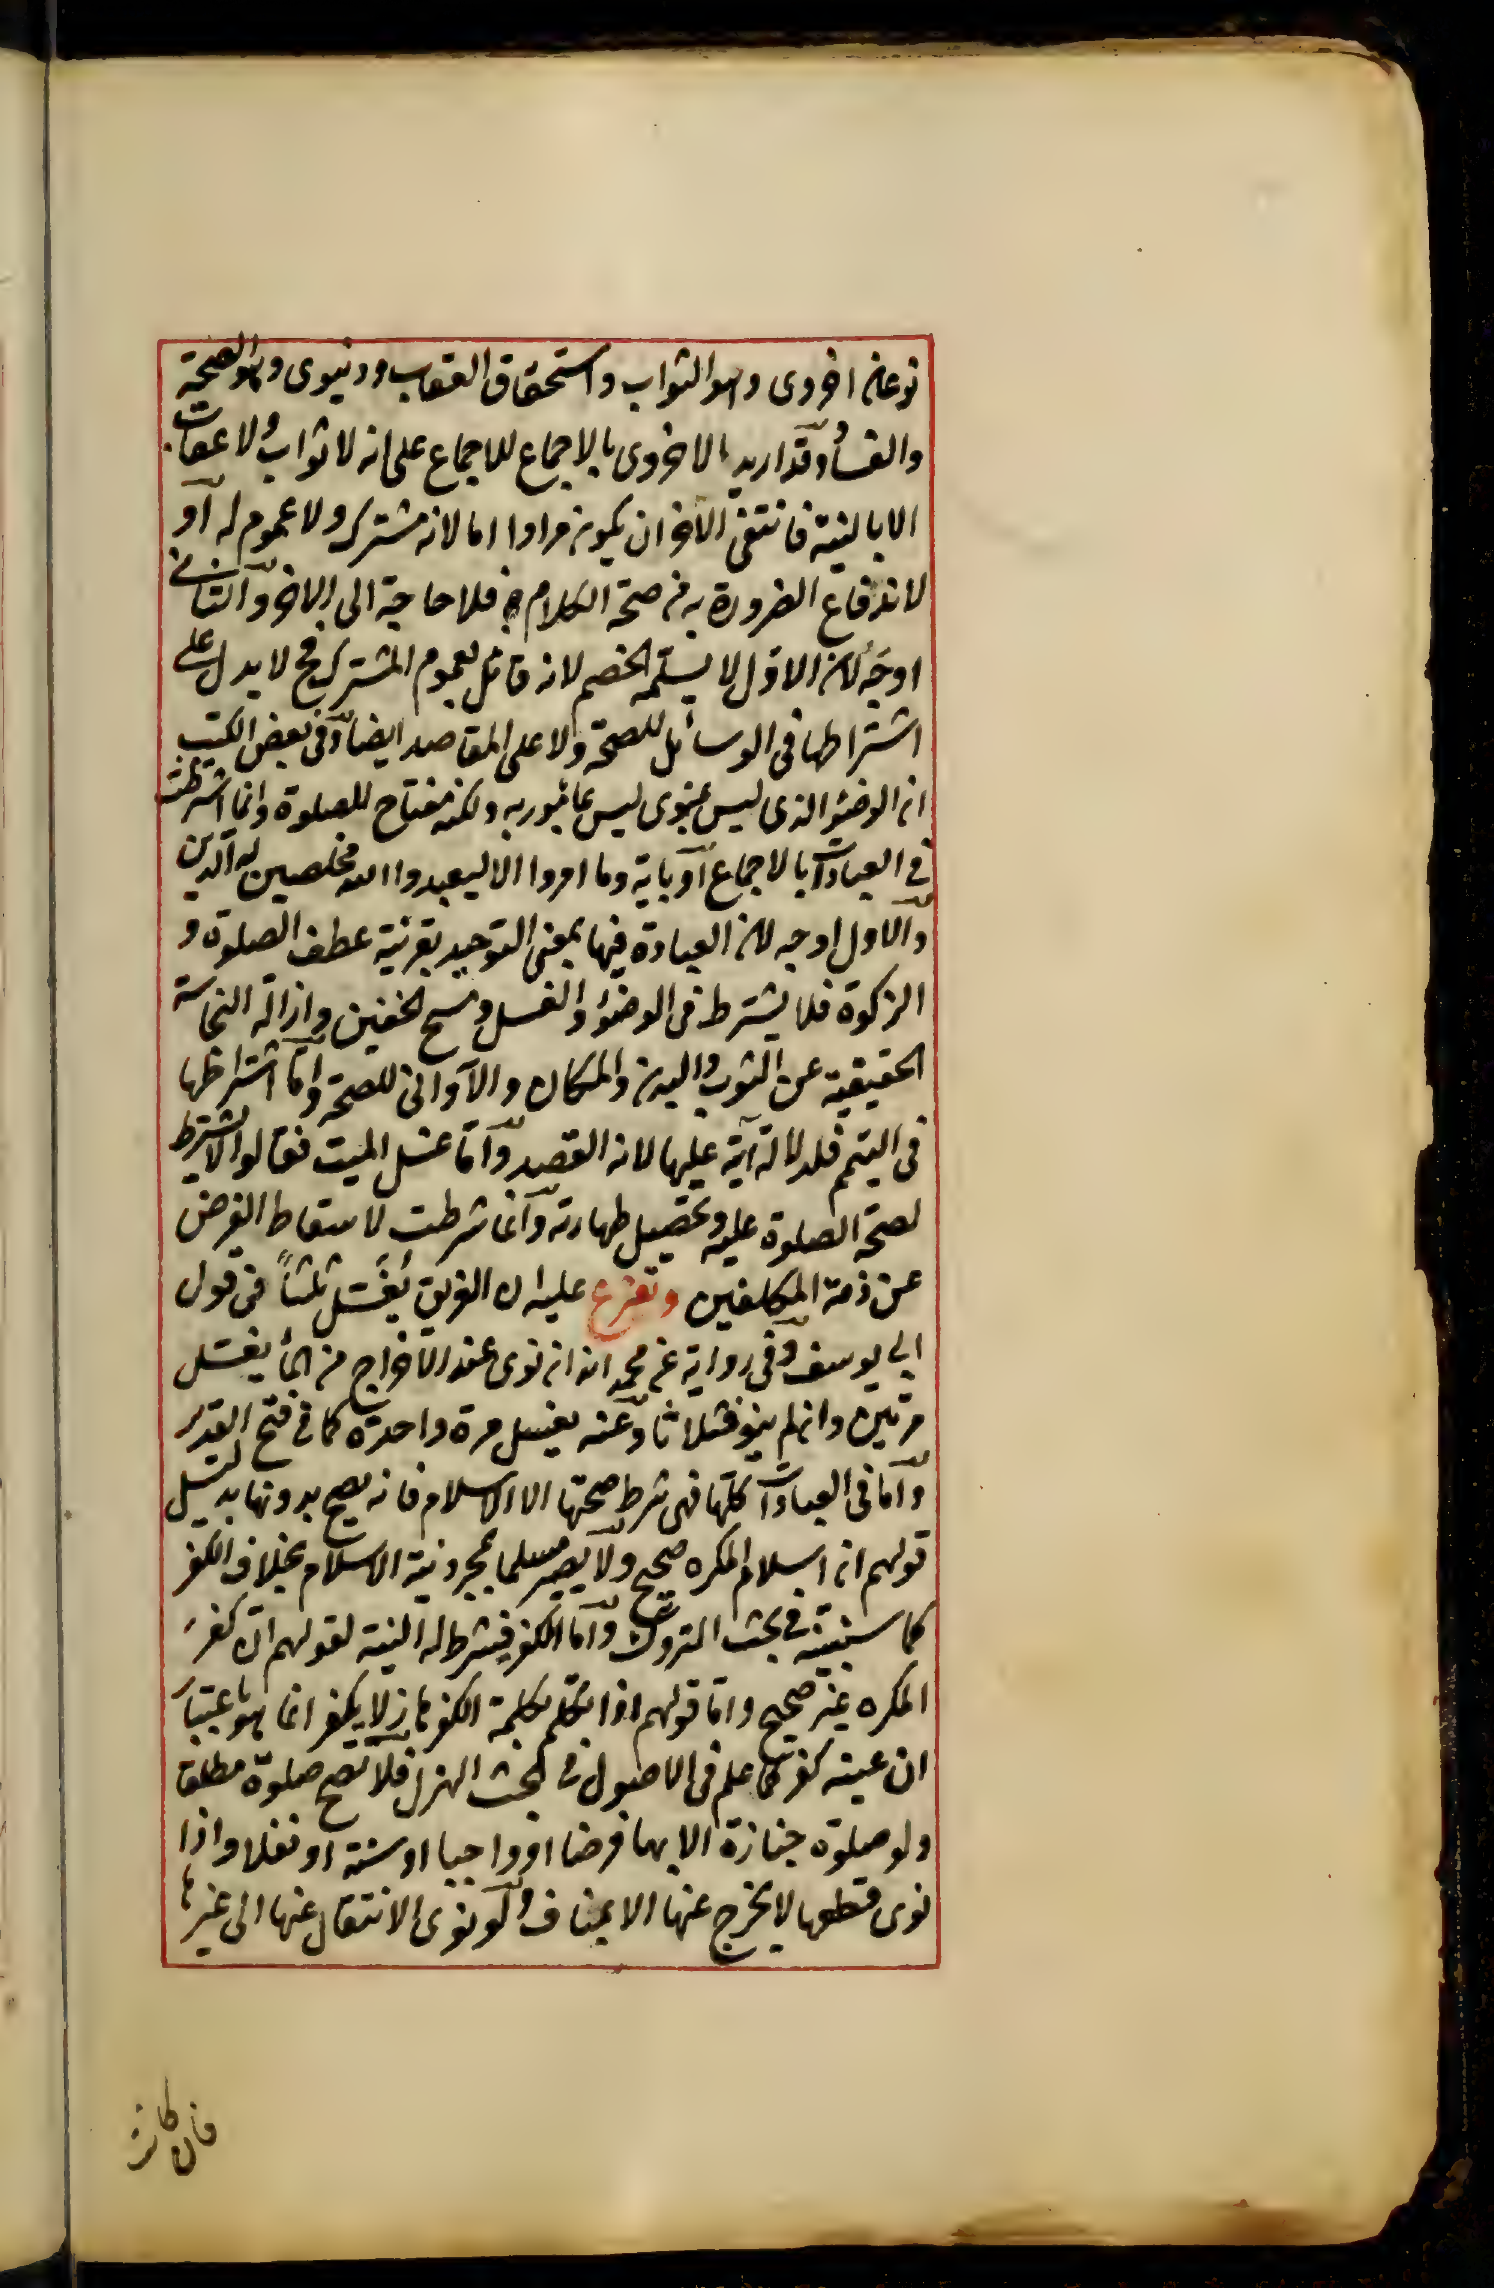 نوعان اخروى وهو الثواب واستحقاق العقاب ودنيوى وهو الصحة
والفساد وقد اريد الاخروى بالاجماع للاجماع على انه لا ثواب ولا عقاب
الا بالنية فانتفى الآخر ان يكون مرادا اما لانه مشترك ولا عموم له او
لاندفاع الضرورة به من صحة الكلام به فلا حاجة الى الاخر والثانى
اوجه لان الاول لا يسلمه الخصم لانه قائل بعموم المشترك فح لا يدل على
اشتراطها فى الوسائل للصحة ولا على المقاصد ايضا وفى بعض الكتب
ان الوضوء الذى ليس بمنوى ليس بمأمور به ولكنه مفتاح للصلوة وانما اشترطت
فى العبادات بالاجماع او بآية وما امروا الا ليعبدوا الله مخلصين له الدين
والاول اوجه لان العبادة فيها بمعنى التوحيد بقرينة عطف الصلوة و
الزكوة فلا يشترط فى الوضوء والغسل ومسح الخفين وازالة النجاسة
الحقيقية عن الثوب والبدن والمكان والآوانى للصحة واما اشتراطها
فى التيمم فلدلالة آية عليها لانه القصد واما غسل الميت فقالوا لا يشترط
لصحة الصلوة عليه وتحصيل طهارته وانما شرطت لاسقاط الفرض
عن ذمة المكلفين وتفرع عليه ان الغريق يغسل ثلثاً فى قول
ابى يوسف وفى رواية عن محمد انه ان نوى عند الاخراج من الماء يغسل
مرتين وان لم ينو فثلاثا وعنه يغسل مرة واحدة كما فى فتح القدير
واما فى العبادات كلها فهى شرط صحتها الا الاسلام فانه يصح بدونها بدليل
قولهم ان اسلام المكره صحيح ولا يصير مسلما بمجرد نية الاسلام بخلاف الكفر
كما سنبينه فى بحث التروك واما الكفر فيشترط له النية لقولهم ان كفر
المكره غير صحيح واما قولهم اذا تكلم بكلمة الكفر هازلا يكفر انما هو باعتبار
ان عينه كفر كما علم فى الاصول فى بحث الهزل فلا تصح صلوة مطلقا
ولو صلوة جنازة الا بها فرضا او واجبا او سنة او نفلا واذا
نوى قطعها لا يخرج عنها الا بمناف ولو نوى الانتقال عنها الى غيرها
فان كانت